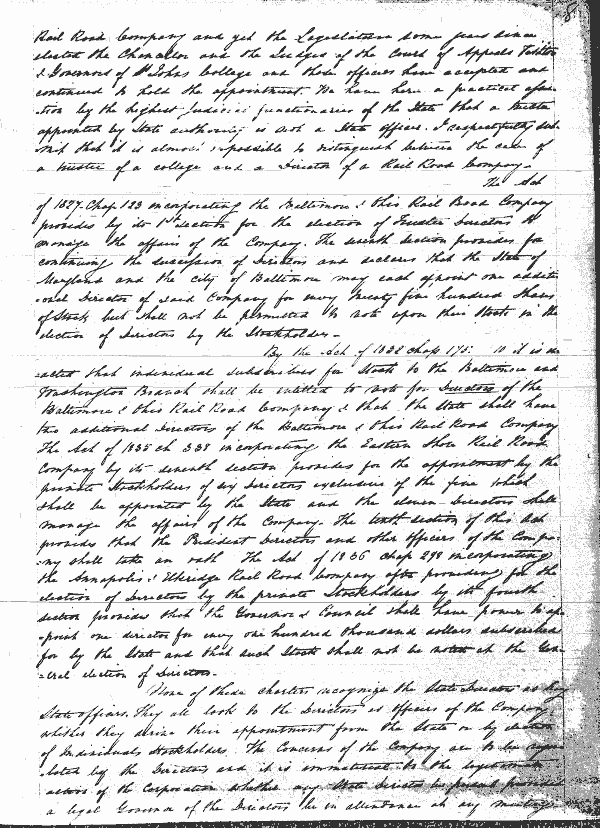 8
Rail Road Company and yet the Legislature some years since
elected the Chancellor and the Judges of the Court of Appeals Visitors
& Governors of St Johns College and those officers have accepted and
continued to hold the appointment. We have here a practical affirma
-tion by the highest judicial functionaries of the State that a trustee
appointed by State authority is not a State officer. I respectfully sub
-mit that it is almost impossible to distinguish between the case of
a trustee of a college and a Director of a Rail Road Company.
The Act
of 1827. Chap. 123 incorporating the Baltimore & Ohio Rail Road Company
provides by its section for the election of Twelve Directors to
manage the affairs of the Company. The section provides for
continuing the succession of Directors and declares that the State of
Maryland and the city of Baltimore may each appoint one additi
-onal Director of said Company for every twenty five hundred Shares
of Stock but shall not be permitted to vote upon their Stock in the
election of Directors by the Stockholders.
By the Act of 1832 chap 175: 10 it is en
-acted that individual subscribers for Stock to the Baltimore and
Washington Branch shall be entitled to vote for Directors of the
Baltimore & Ohio Rail Road Company & that the State shall have
two additional Directors of the Baltimore & Ohio Rail Road Company
The Act of 1835 ch 338 incorporating the Eastern Shore Rail Road
Company by its seventh section provides for the appointment by the
private Stockholders of six Directors exclusive of the five which
shall be appointed by the State and the eleven Directors shall
manage the affairs of the Company. The tenth section of this Act
provides that the President Directors and other officers of the Compa
-ny shall take an oath The Act of 1836 chap 298 incorporating
the Annapolis & Elkridge Rail Road Company after providing for the
election of Directors by the private Stockholders by its fourth
section provides that the Governor & Council shall have power to ap
-point one director for every one hundred thousand dollars subscribed
for by the State and that such Stock shall not be voted at the Gen
-eral election of Directors.
None of these charters recognize the State Directors as
State officers. They all look to the Directors as officers of the Company
whether they derive their appointment from the State or by election
of Individual Stockholders. The Concerns of the Company are to be regu
-lated by the Directors and it is immaterial to the legitimate
actions of the Corporation whether any State Director be present provided
a legal Quorum of the Directors be in attendance at any meeting